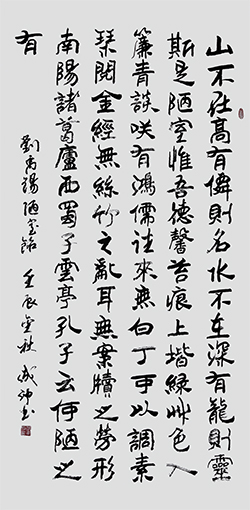 山不在高有僊則名水不在深有龍則靈
斯是陋室惟吾德馨苔痕上堦綠艸色入
簾青談咲有鴻儒往來無白丁可以調素
琹閱金經無絲竹之亂耳無案牘之勞形
南陽諸葛廬西蜀子雲亭孔子云何陋之
有
劉禹錫陋室銘 壬辰金秋 成書